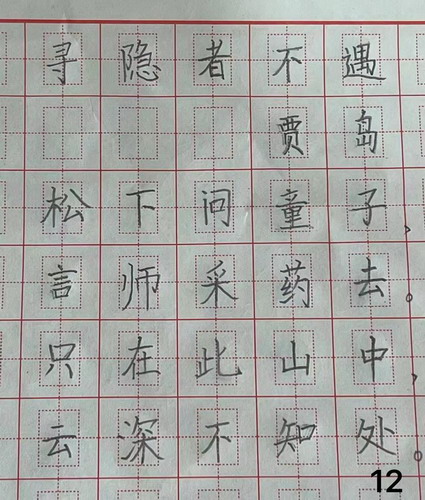 寻隐者不遇
贾岛
松下问童子，
言师采药去。
只在此山中，
云深不知处。
12